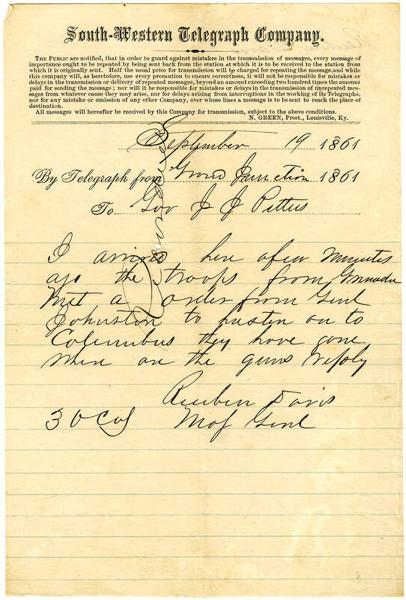 South-Western Telegraph Company.
THE PUBLIC are notified, that in order to guard against mistakes in the transmission of messages, every message of
importance ought to be repeated by being sent back from the station at which it is to be received to the station from
which it is originally sent. Half the usual price for transmission will be charged for repeating the message, and while
this company will, as heretofore, use every precaution to ensure correctness, it will not be responsible for mistakes or
delays in the transmission or delivery of repeated messages, beyond an amount exceeding two hundred times the amount
paid for sending the message; nor will it be responsible for mistakes or delays in the transmission of unrepeated messages
from whatever cause they may arise, nor for delays arising from interruptions in the working of its Telegraphs,
nor for any mistake or omission of any other Company, over whose lines a message is to be sent to reach the place of
destination.
All messages will hereafter be received by this Company for transmission, subject to the above conditions.
N. GREEN, Prest., Louisville, Ky.
September 19 1861
By Telegraph from Grand Junction 1861
To Gov J J Pettus
I arrived here a few minutes
ago the troops from Grenada
met a order from Genl
Johnston to hasten on to
Columbus they have gone
where are the guns reply
Reuben Davis
30 Col Maj Genl